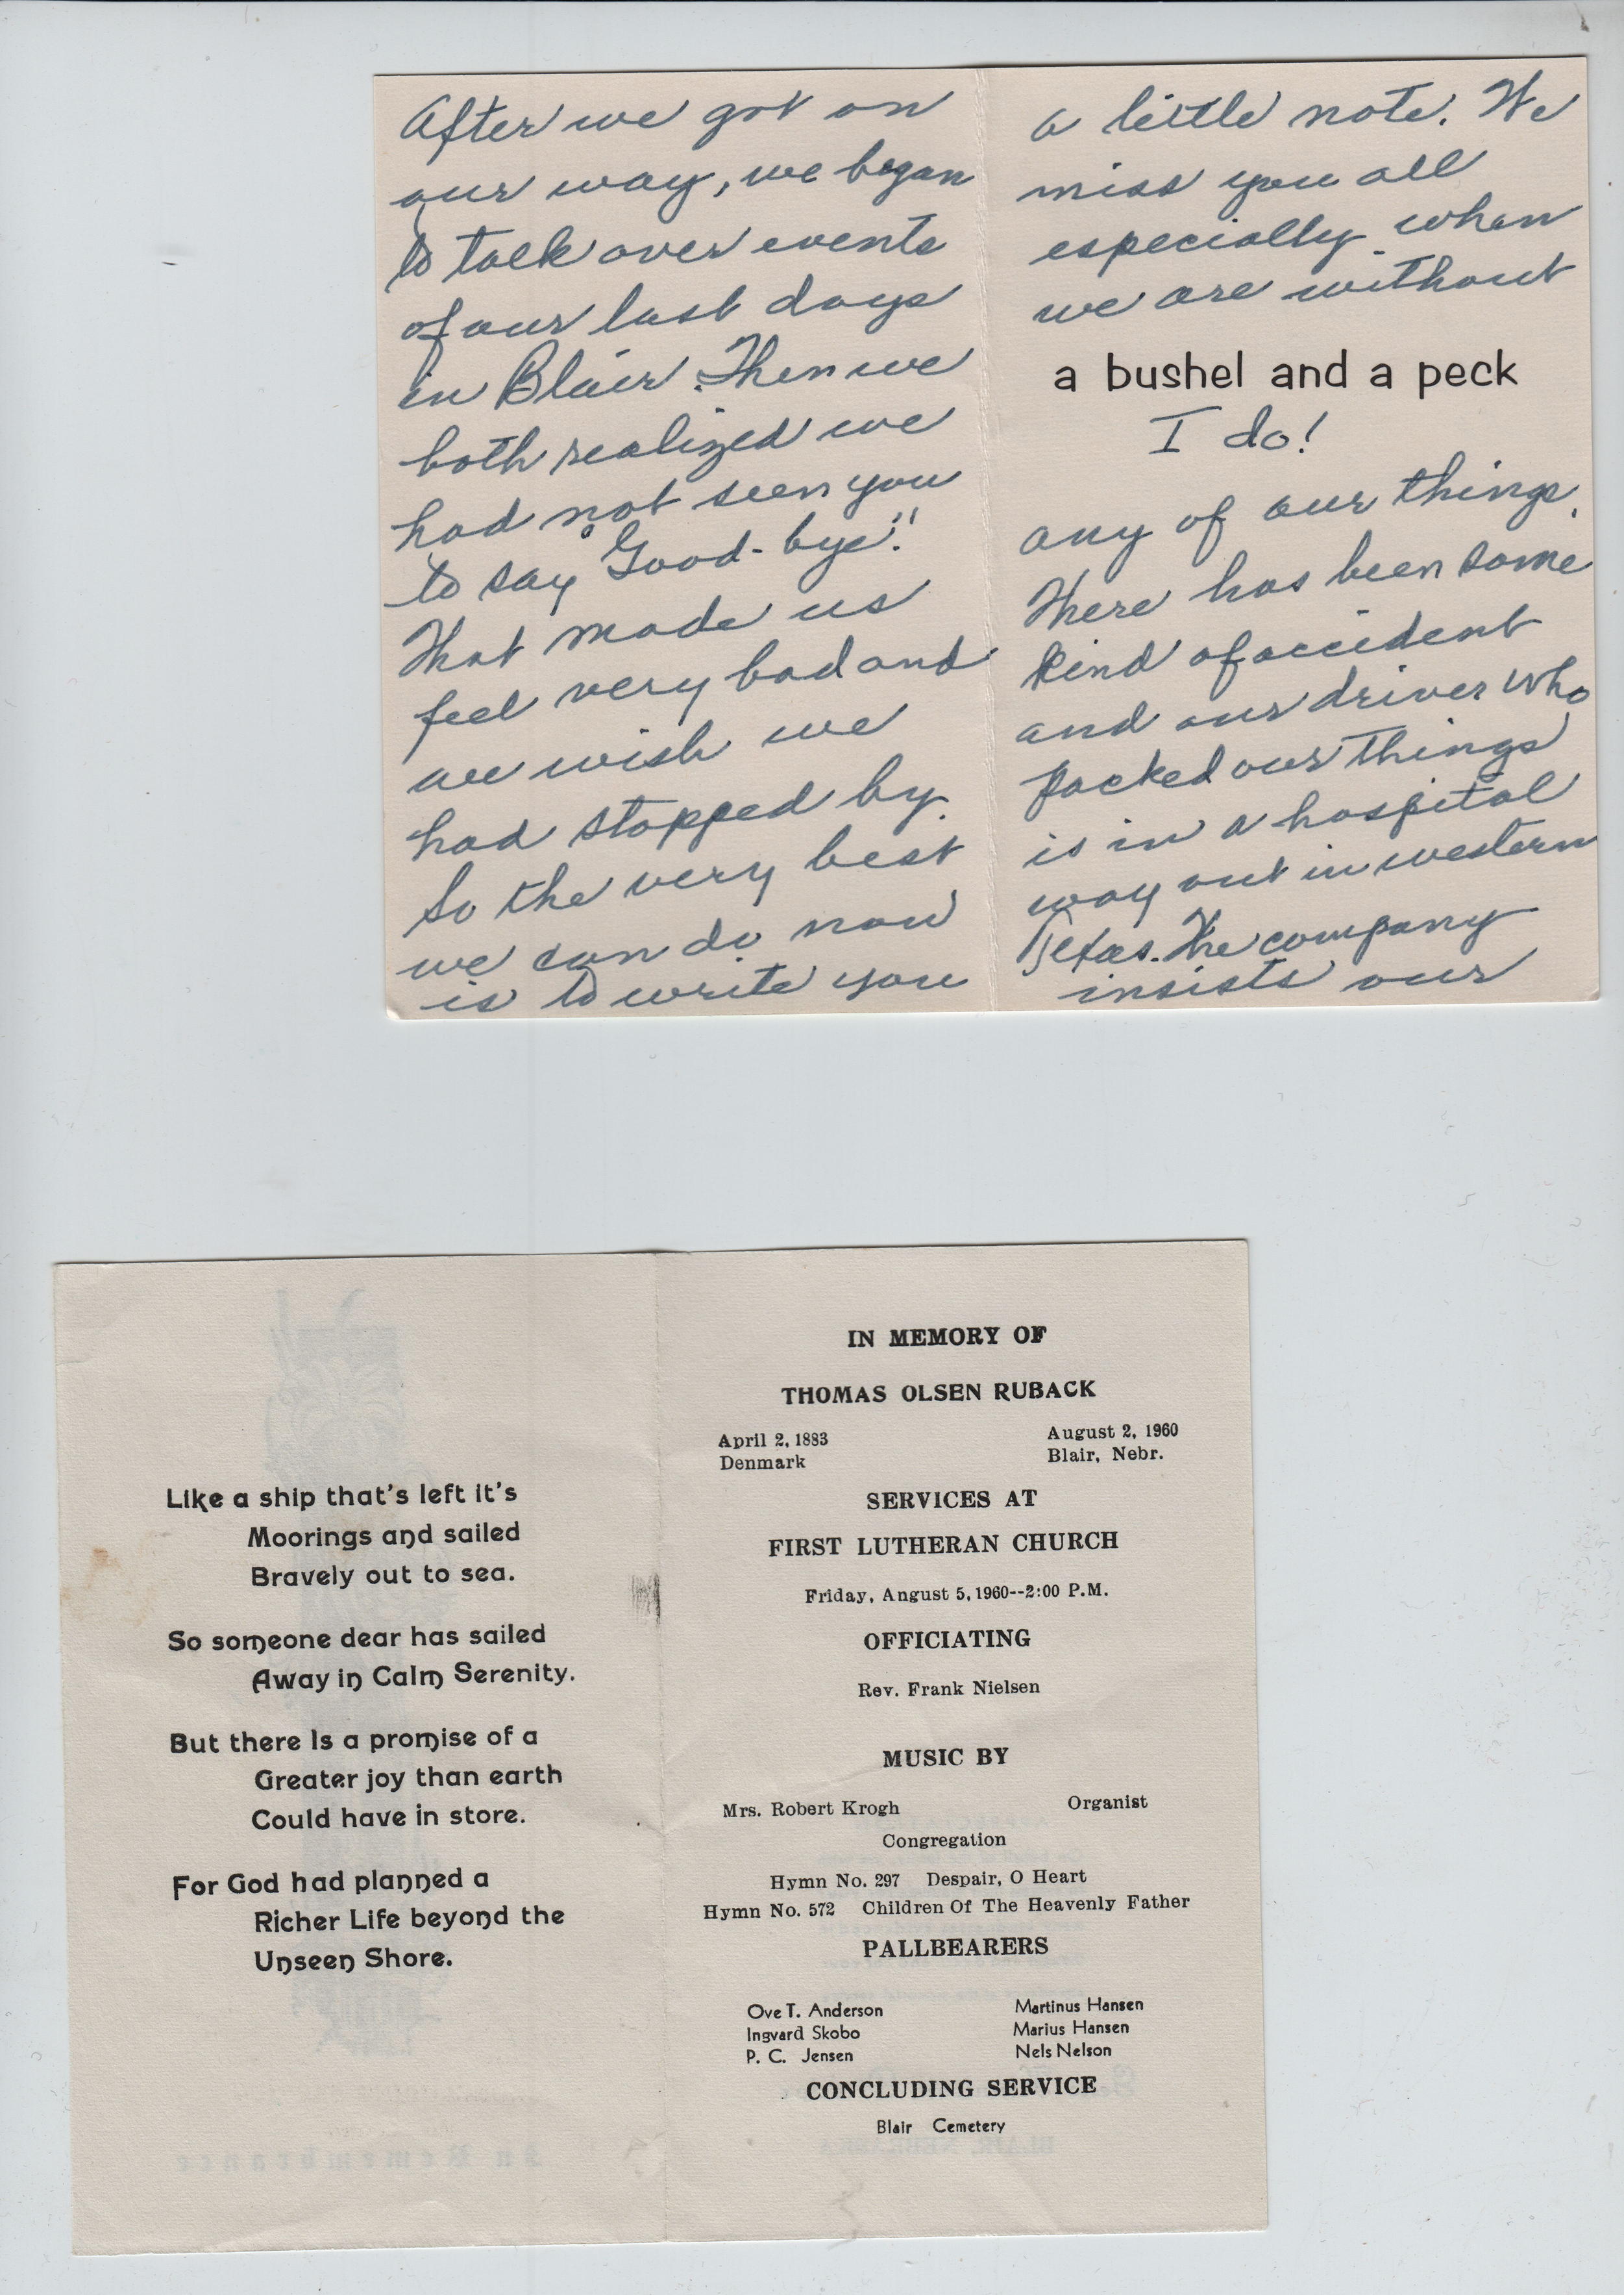 After we got on
our way, we began
to talk over events
of our last days
in Blair. Then we
both realized we
had not seen you
to say "Good-bye."
That made us
feel very bad and
we wish we
had stopped by.
So the very best
we can do now
is to write you
a little note. We
miss you all
especially when
we are without
a bushel and a peck
I do!
any of our things.
There has been some
kind of accident
and our driver who
packed our things
is in a hospital
way out in western
Texas. The company
insists our
Like a ship that's left it's
Moorings and sailed
Bravely out to sea.
So someone dear has sailed
Away in Calm Serenity.
But there Is a promise of a
Greater joy than earth
Could have in store.
For God had planned a
Richer Life beyond the
Unseen Shore.
IN MEMORY OF
THOMAS OLSEN RUBACK
April 2, 1883 August 2, 1960
Denmark Blair, Nebr.
SERVICES AT
FIRST LUTHERAN CHURCH
Friday, August 5, 1960--2:00 P.M.
OFFICIATING
Rev. Frank Nielsen
MUSIC BY
Mrs. Robert Krogh Organist
Congregation
Hymn No. 297 Despair, O Heart
Hymn No. 572 Children Of The Heavenly Father
PALLBEARERS
Ove T. Anderson Martinus Hansen
Ingvard Skobo Marius Hansen
P. C. Jensen Nels Nelson
CONCLUDING SERVICE
Blair Cemetery
In Remembrance
BLAIR, NEBRASKA